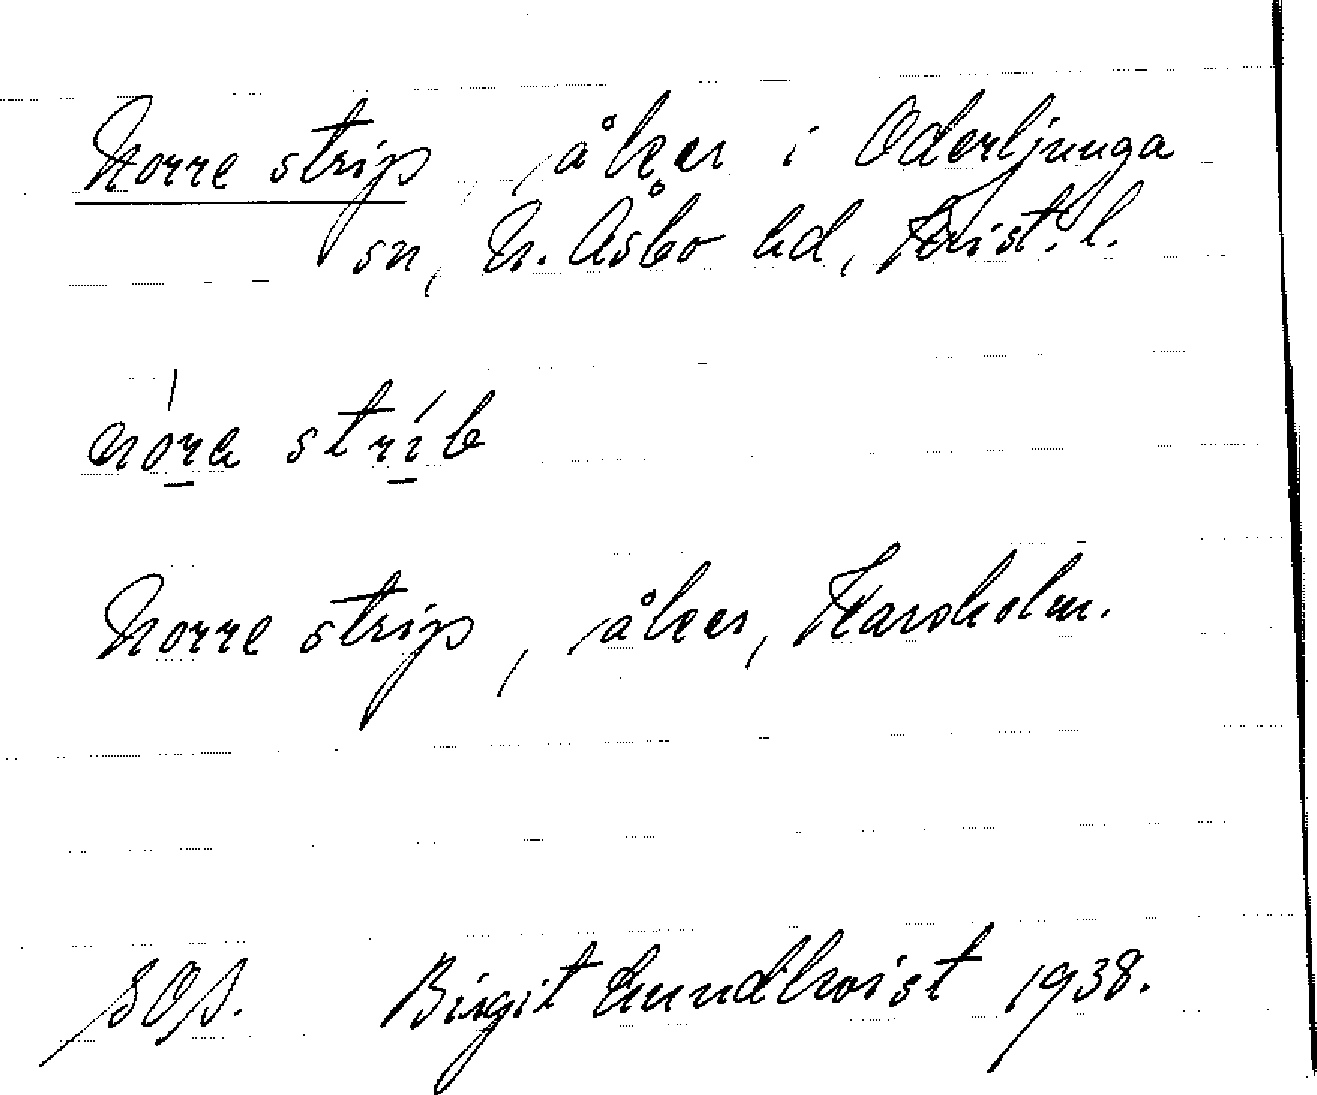 Norre strip, åker i Oderljunga
sn, N. Åsbo hd, Krist. l.
nora strib
Norre strip, åker, Karsholm.
SOS. Birgit Lundkvist 1938.